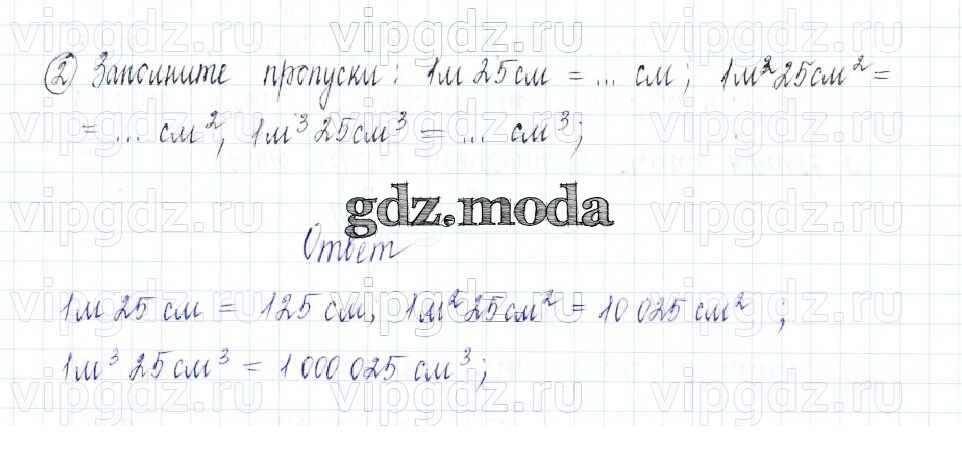 vipgdz.ru vipgdz.ru vipgdz.ru
② Заполните пропуски: 1м 25см = ... см; 1м² 25см² =
vipgdz.ru vipgdz.ru vipgdz.ru
= ... см², 1м³ 25см³ = ... см³;
gdz.moda
vipgdz.ru vipgdz.ru vipgdz.ru
Ответ
vipgdz.ru vipgdz.ru vipgdz.ru
1м 25 см = 125 см, 1м² 25см² = 10 025 см² ;
1м³ 25 см³ = 1 000 025 см³;
vipgdz.ru vipgdz.ru vipgdz.ru